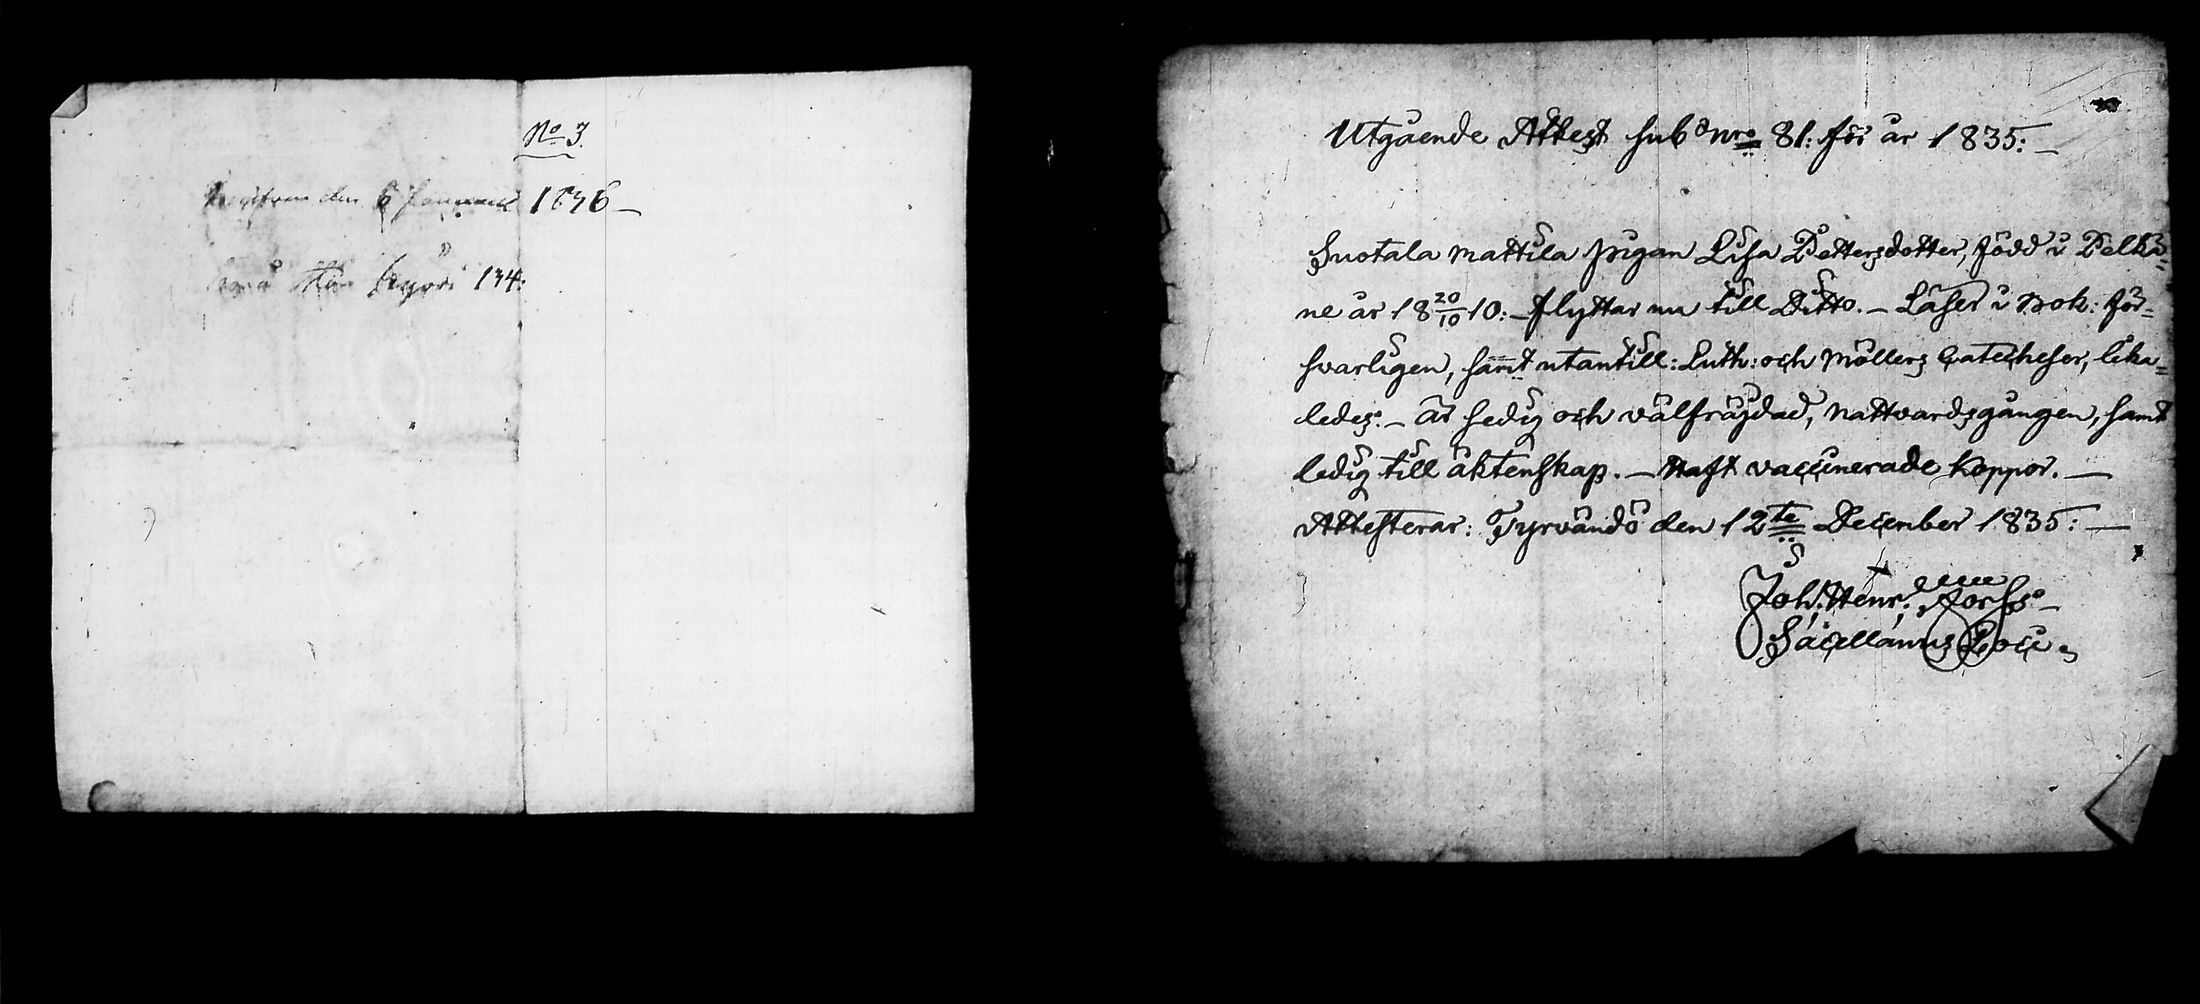 No 3.
den 6 Januarii 1836 —
134:
Utgående Attest sub nro 81: för år 1835: —
Suotala Mattila pigan Lisa Pettersdotter, född i Pelkä=
ne år 18 20/10 10: — flyttar nu till Ditto. — Läser i Bok: för=
svarligen, samt utantill: Luth: och Möllers Catecheser, lika=
ledes: — är sedig och välfräjdad, nattvardsgången, samt
ledig till äktenskap. — Haft vaccinerade koppor. —
Attesterar: Tyrvändö den 12te December 1835: —
Joh. Henr. Forss —
Sacellanus Loci